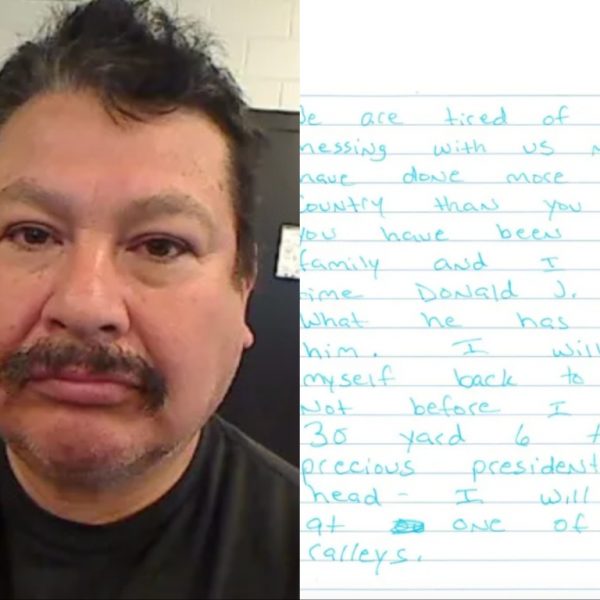 are tired of
messing with us
have done more
country than you
you have been
family and I
Donald J.
What he has
him. I will
myself back to
Not before I
30 yard 6
precious president
head - I will
at one of
ralleys.